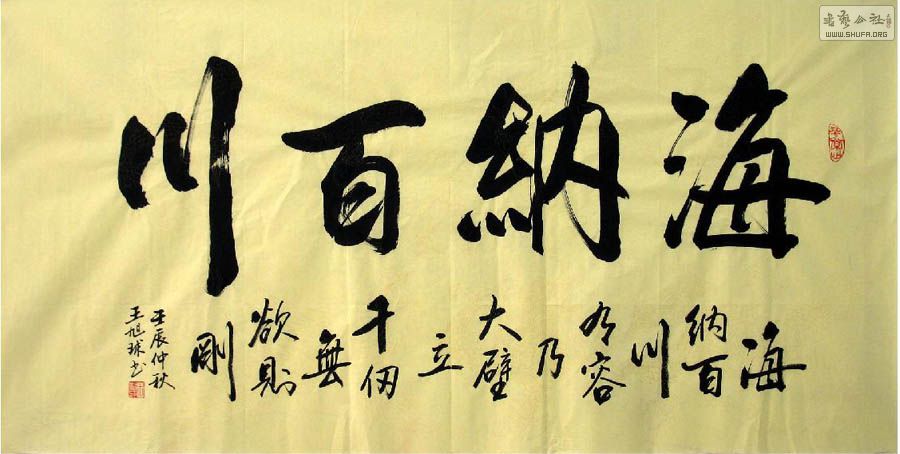 海納百川
海
納百
川
有容
乃
大壁
立
千仞
無
欲則
剛
壬辰仲秋
王旭球书
书艺公社
WWW.SHUFA.ORG